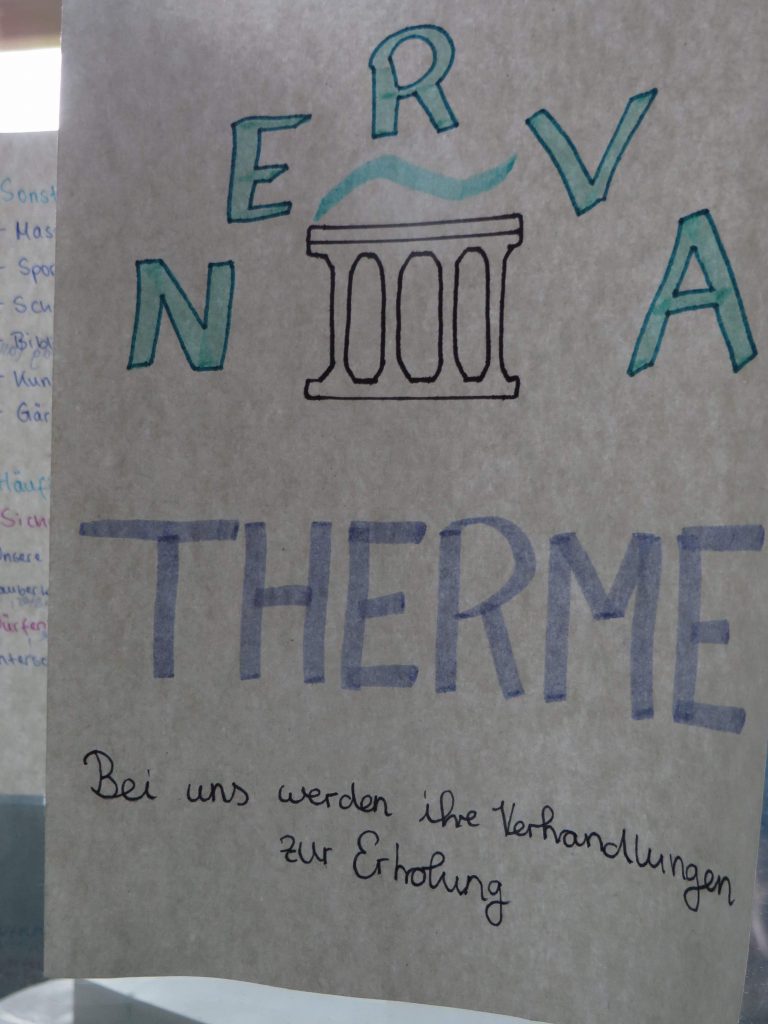 NERVA
THERME
Bei uns werden ihre Verhandlungen
zur Erholung
Sonst
- Mas
- Spo
- Sch
- Bild
- Kun
- Gär
Häuf
Sich
unsere